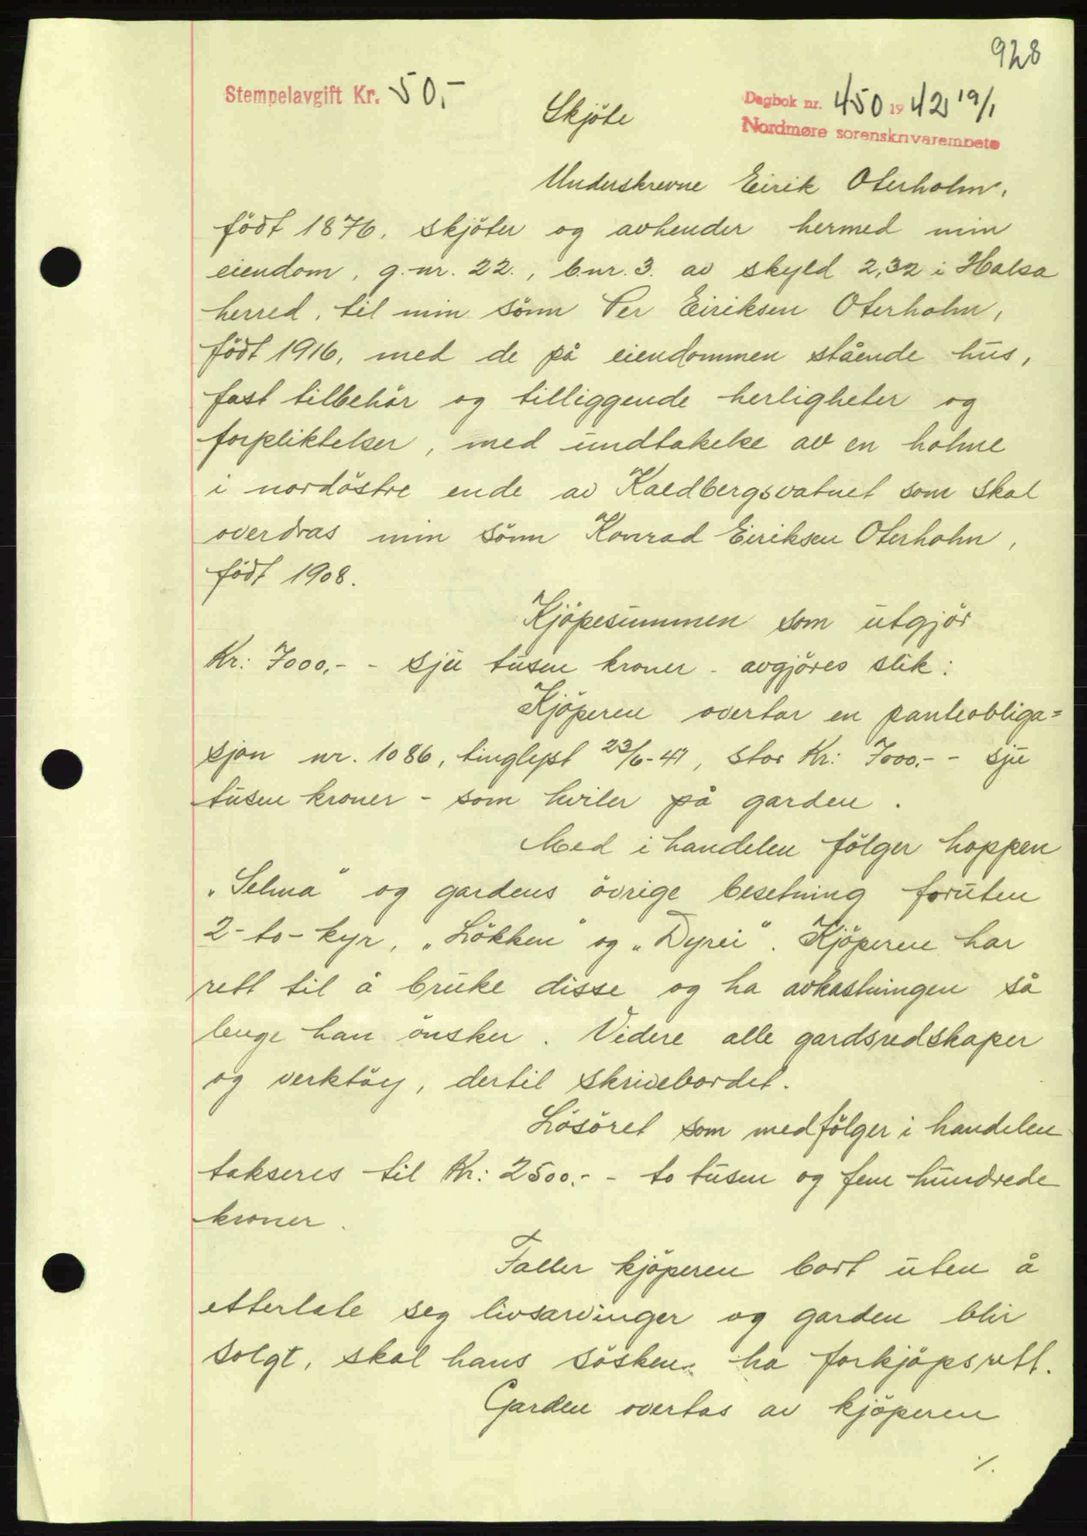 928
Stempelavgift Kr. 50,-
Dagbok nr. 450 1942 19/1
Nordmøre sorenskrivarembete
Skjöte
Underskrevne Eirik Oterholm,
födt 1876, skjöter og avhender hermed min
eiendom, g.nr. 22., b.nr. 3. av skyld 2,32 i Halsa
herred, til min sönn Per Eiriksen Oterholm,
födt 1916, med de på eiendommen stående hus,
fast tilbehör og tilliggende herligheter og
forpliktelser, med undtakelse av en holme
i nordöstre ende av Kaldbergsvatnet som skal
overdras min sönn Konrad Eiriksen Oterholm,
födt 1908.
Kjöpesummen som utgjör
Kr: 7000,- - sju tusen kroner - avgjöres slik:
Kjöperen overtar en panteobliga=
sjon nr. 1086, tinglyst 23/6-41, stor Kr: 7000.- - sju
tusen kroner - som hviler på garden.
Med i handelen fölger hoppen
„Selma” og gardens övrige besetning foruten
2-to-kyr, „Lökken” og „Dyrei”. Kjöperen har
rett til å bruke disse og ha avkastningen så
lenge han önsker. Videre alle gardsredskaper
og verktöy, dertil skrivebordet.
Lösöret som medfölger i handelen
takseres til Kr: 2500.- - to tusen og fem hundrede
kroner.
Faller kjöperen bort uten å
etterlate seg livsarvinger og garden blir
solgt, skal hans sösken ha forkjöpsrett.
Garden overtas av kjöperen
./.